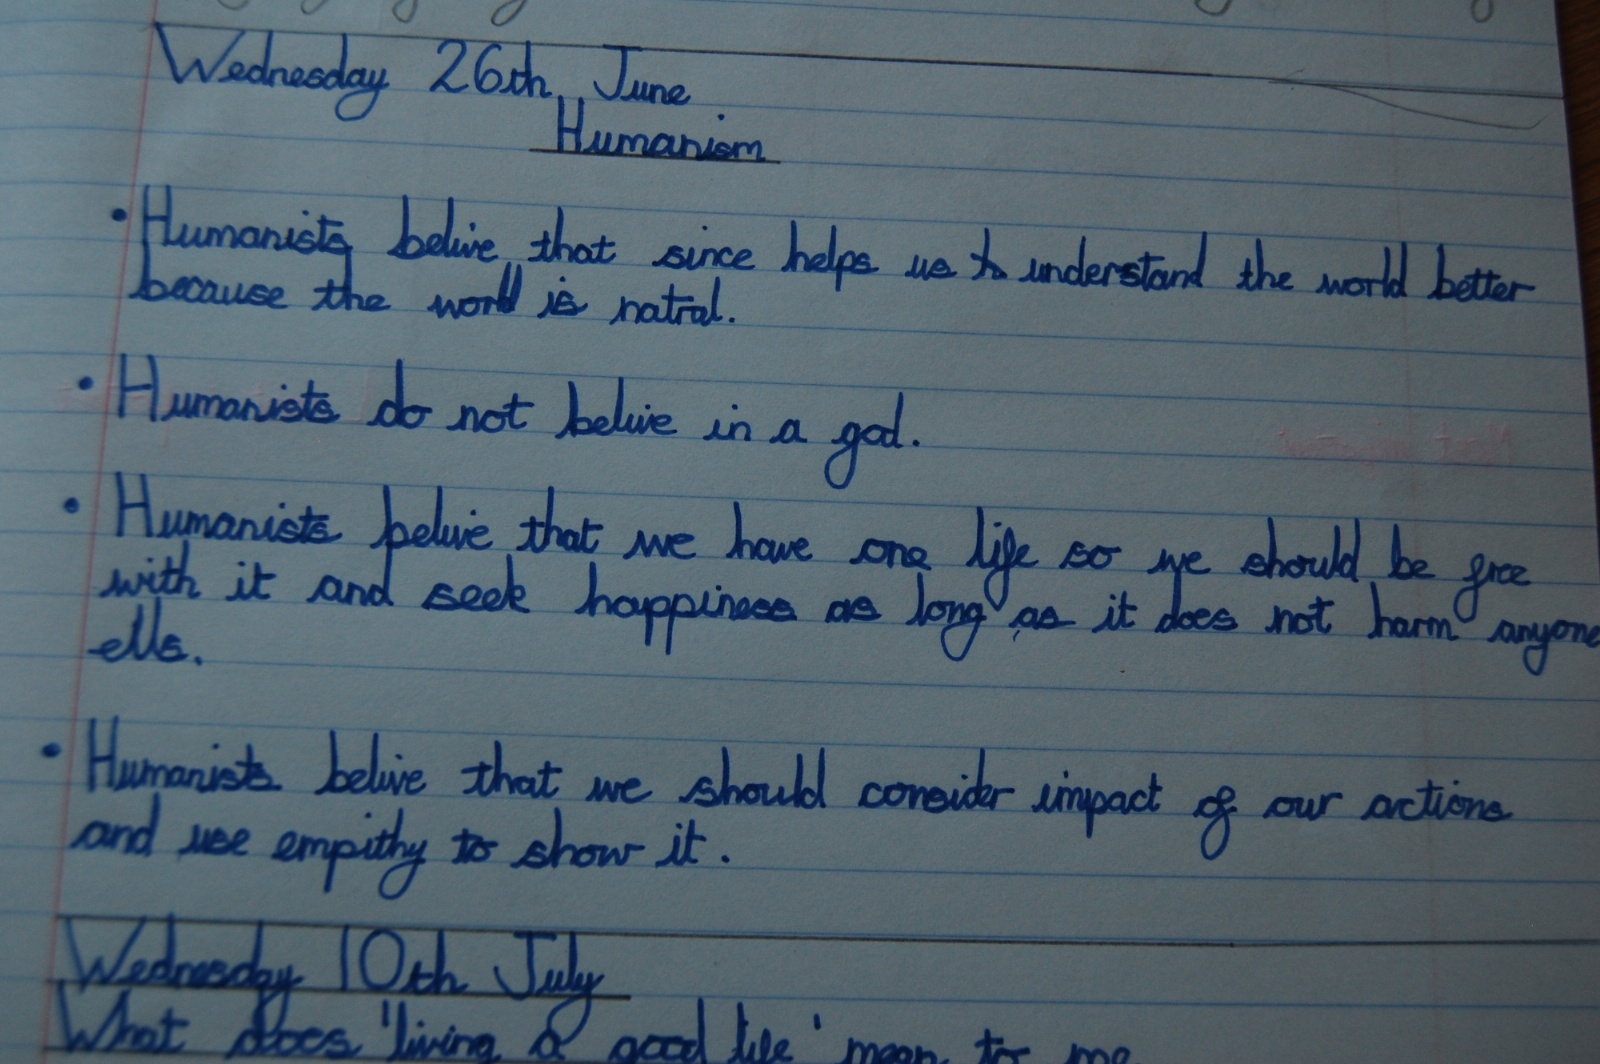 Wednesday 26th June
Humanism
• Humanists belive that since helps us to understand the world better
because the world is natral.
• Humanists do not belive in a god.
• Humanists belive that we have one life so we should be free
with it and seek happiness as long as it does not harm anyone
ells.
• Humanists belive that we should consider impact of our actions
and use empithy to show it.
Wednesday 10th July
What does 'living a good life' mean to me